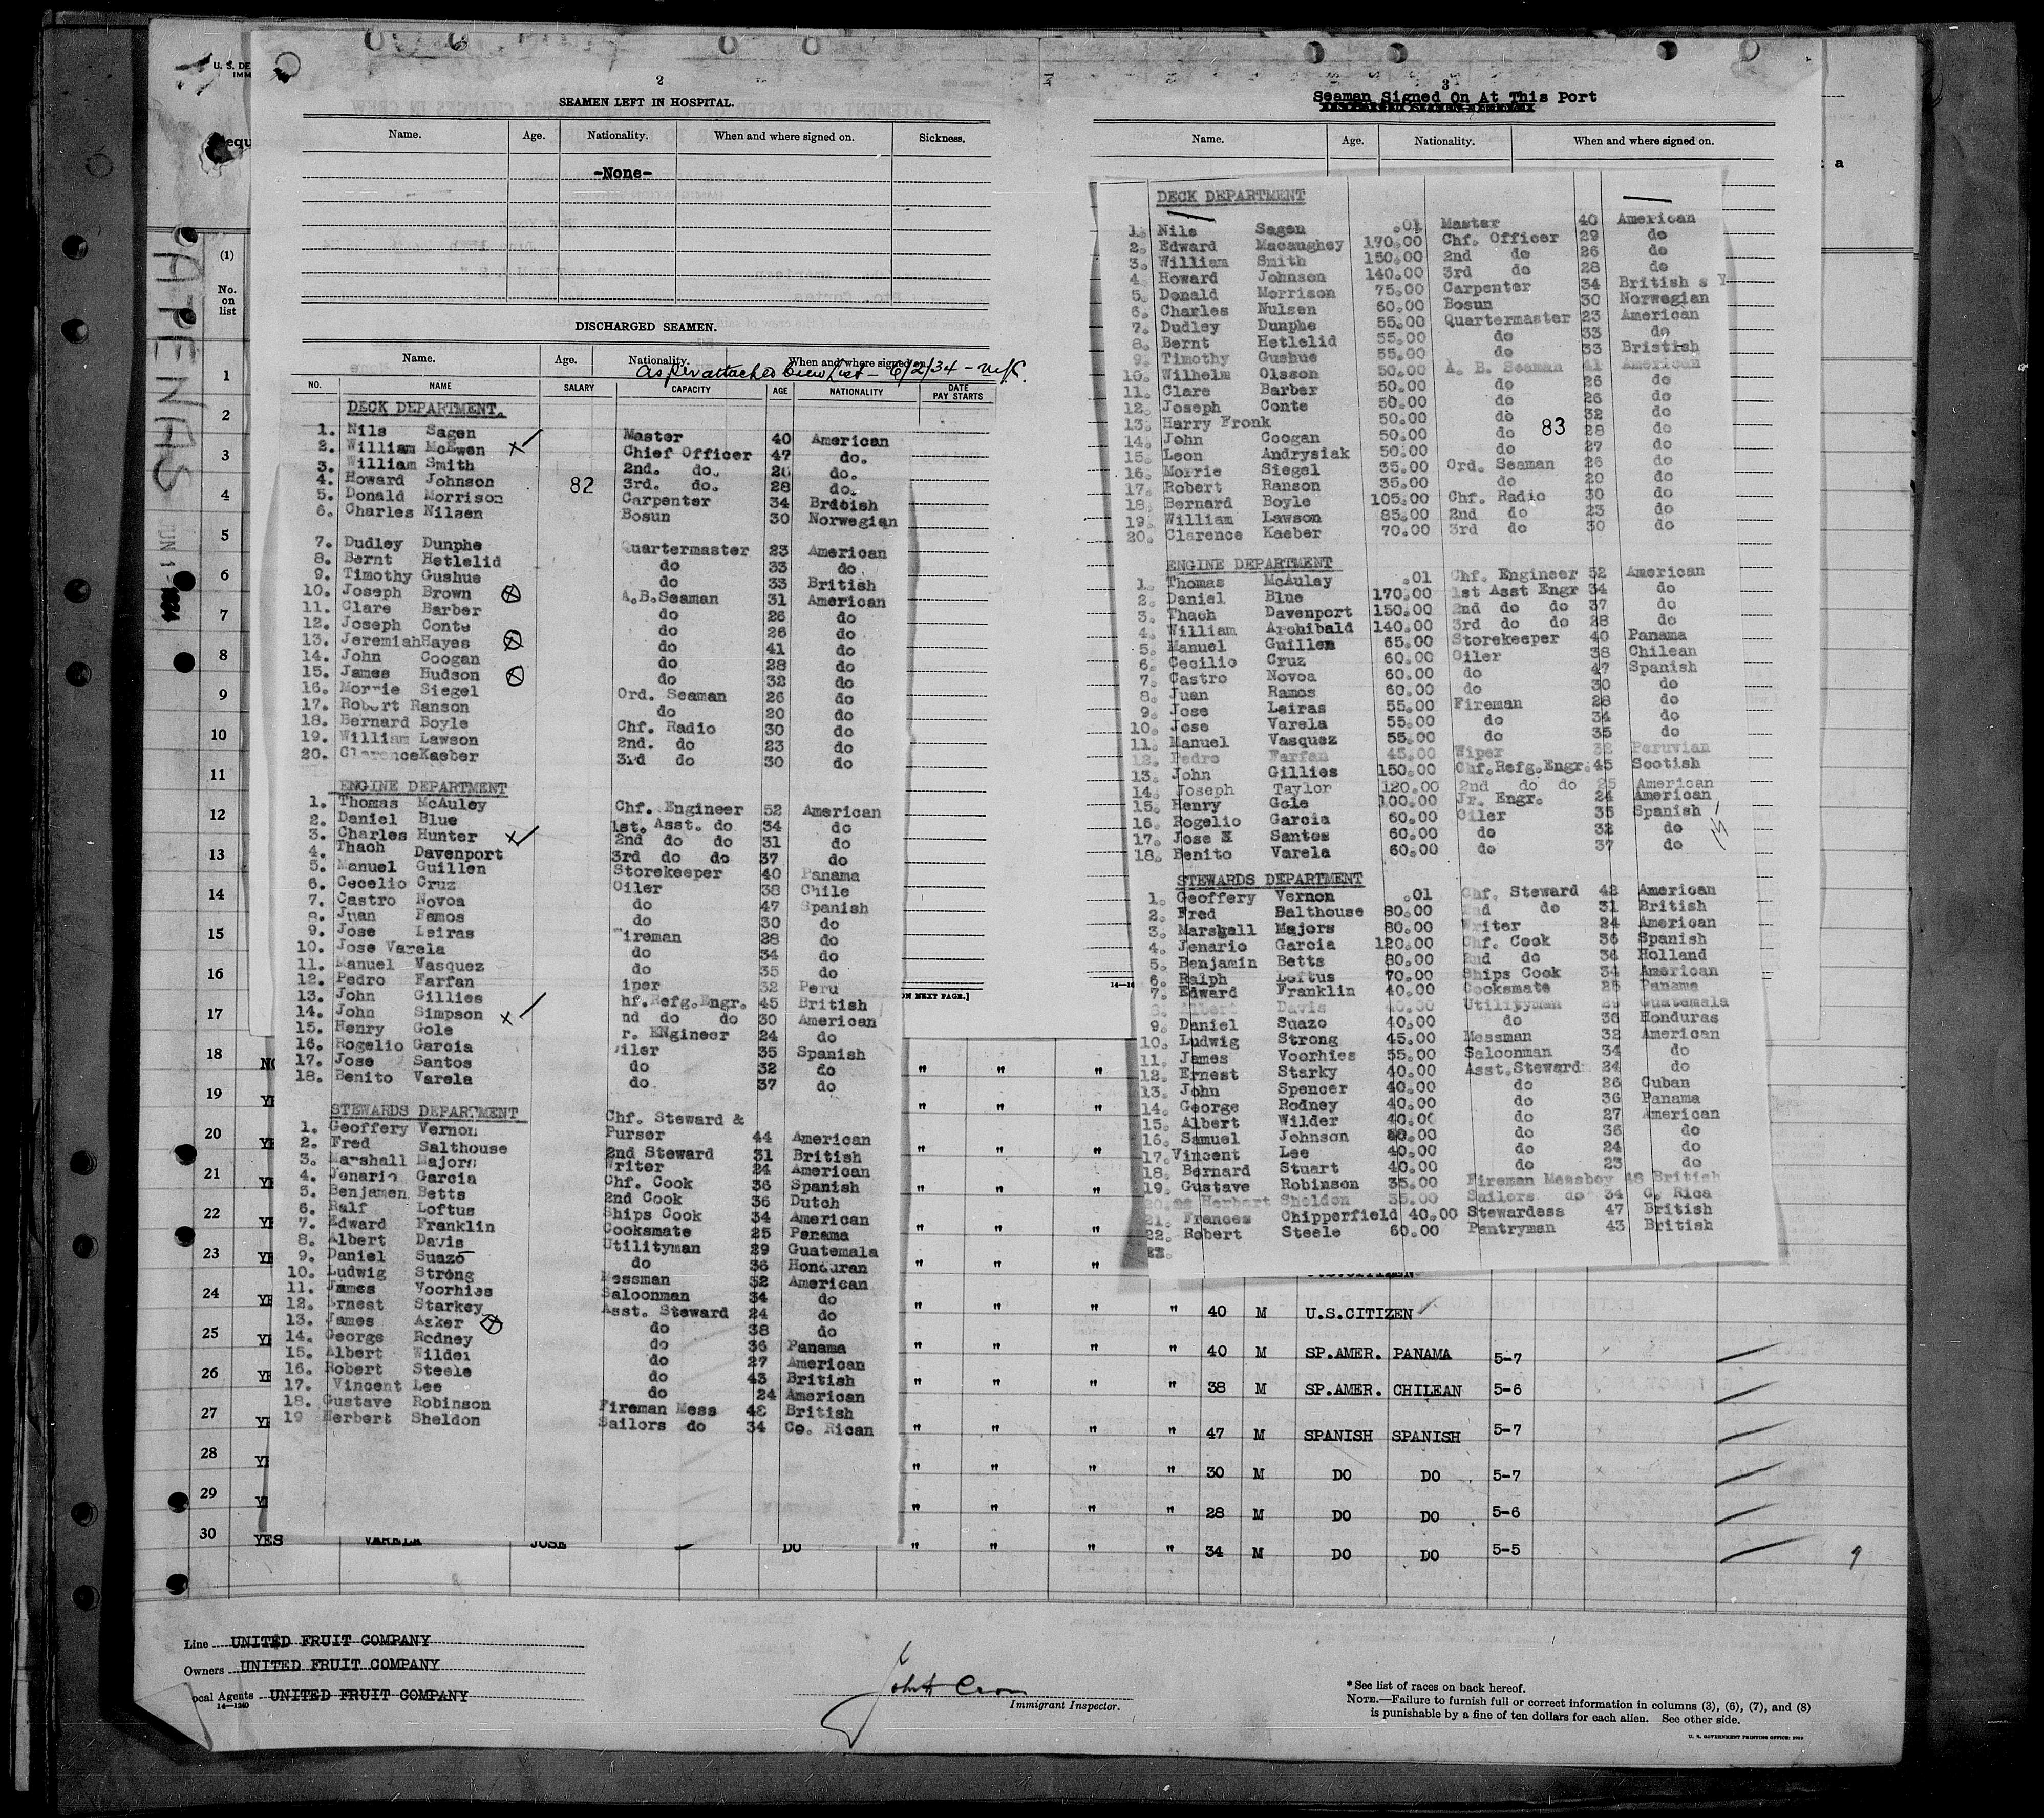 U. S. DE
IMM
2
SEAMEN LEFT IN HOSPITAL.
Name. Age. Nationality. When and where signed on. Sickness.
-None-
DISCHARGED SEAMEN.
Name. Age. Nationality. When and where signed on.
As per attached Crew List - 6/2/34 - N.Y.
NO. NAME SALARY CAPACITY AGE NATIONALITY DATE PAY STARTS
DECK DEPARTMENT.
1. Nils Sagen Master 40 American
2. William McEwen Chief Officer 47 do.
3. William Smith 2nd. do. 26 do.
4. Howard Johnson 82 3rd. do. 28 do.
5. Donald Morrison Carpenter 34 British
6. Charles Nilsen Bosun 30 Norwegian
7. Dudley Dunphe Quartermaster 23 American
8. Bernt Hetlelid do 33 do
9. Timothy Gushue do 33 British
10. Joseph Brown A.B.Seaman 31 American
11. Clare Barber do 26 do
12. Joseph Conte do 26 do
13. JeremiahHayes do 41 do
14. John Coogan do 28 do
15. James Hudson do 32 do
16. Morrie Siegel Ord. Seaman 26 do
17. Robert Ranson do 20 do
18. Bernard Boyle Chf. Radio 30 do
19. William Lawson 2nd. do 23 do
20. ClarenceKaeber 3rd do 30 do
ENGINE DEPARTMENT
1. Thomas McAuley Chf. Engineer 52 American
2. Daniel Blue 1st. Asst. do 34 do
3. Charles Hunter 2nd do do 31 do
4. Thach Davenport 3rd do do 37 do
5. Manuel Guillen Storekeeper 40 Panama
6. Cecelio Cruz Oiler 38 Chile
7. Castro Novoa do 47 Spanish
8. Juan Ramos do 30 do
9. Jose Leiras ireman 28 do
10. Jose Varela do 34 do
11. Manuel Vasquez do 35 do
12. Pedro Farfan iper 32 Peru
13. John Gillies hf.Refg.Engr. 45 British
14. John Simpson nd do do 30 American
15. Henry Gole r. ENgineer 24 do
16. Rogelio Garcia iler 35 Spanish
17. Jose Santos do 32 do
18. Benito Varela do. 37 do
STEWARDS DEPARTMENT
Chf. Steward &
1. Geoffery Vernon Purser 44 American
2. Fred Salthouse 2nd Steward 31 British
3. Marshall Majors Writer 24 American
4. Jenario Garcia Chf. Cook 36 Spanish
5. Benjamen Betts 2nd Cook 36 Dutch
6. Ralf Loftus Ships Cook 34 American
7. Edward Franklin Cooksmate 25 Panama
8. Albert Davis Utilityman 29 Guatemala
9. Daniel Suazo do 36 Honduran
10. Ludwig Strong Messman 32 American
11. James Voorhies Saloonman 34 do
12. Ernest Starkey Asst. Steward 24 do
13. James Asker do 38 do
14. George Rodney do 36 Panama
15. Albert Wilder do 27 American
16. Robert Steele do 43 British
17. Vincent Lee do 24 American
18. Gustave Robinson Fireman Mess 48 British
19 Herbert Sheldon Sailors do 34 Co. Rican
3
Seaman Signed On At This Port
Name. Age. Nationality. When and where signed on.
DECK DEPARTMENT
1. Nils Sagen .01 Master 40 American
2. Edward Macaughey 170.00 Chf. Officer 29 do
3. William Smith 150.00 2nd do 26 do
4. Howard Johnson 140.00 3rd do 28 do
5. Donald Morrison 75.00 Carpenter 34 British s Y
6. Charles Nulsen 60.00 Bosun 30 Norwegian
7. Dudley Dunphe 55.00 Quartermaster 23 American
8. Bernt Hetlelid 55.00 do 33 do
9. Timothy Gushue 55.00 do 33 Bristish
10. Wilhelm Olsson 50.00 A. B. Seaman 41 American
11. Clare Barber 50.00 do 26 do
12. Joseph Conte 50.00 do 26 do
13. Harry Fronk 50.00 do 83 32 do
14. John Coogan 50.00 do 28 do
15. Leon Andrysiak 50.00 do 27 do
16. Morrie Siegel 35.00 Ord. Seaman 26 do
17. Robert Ranson 35.00 do 20 do
18. Bernard Boyle 105.00 Chf. Radio 30 do
19. William Lawson 85.00 2nd do 23 do
20. Clarence Kaeber 70.00 3rd do 30 do
ENGINE DEPARTMENT
1. Thomas McAuley .01 Chf. Engineer 52 American
2. Daniel Blue 170.00 1st Asst Engr 34 do
3. Thach Davenport 150.00 2nd do do 37 do
4. William Archibald 140.00 3rd do do 28 do
5. Manuel Guillen 65.00 Storekeeper 40 Panama
6. Cecilio Cruz 60.00 Oiler 38 Chilean
7. Castro Novoa 60.00 do 47 Spanish
8. Juan Ramos 60.00 do 30 do
9. Jose Leiras 55.00 Fireman 28 do
10. Jose Varela 55.00 do 34 do
11. Manuel Vasquez 55.00 do 35 do
12. Pedro Farfan 45.00 Wiper 32 Peruvian
13. John Gillies 150.00 Chf.Refg.Engr. 45 Scotish
14. Joseph Taylor 120.00 2nd do do 25 American
15. Henry Gole 100.00 Jr. Engr. 24 American
16. Rogelio Garcia 60.00 Oiler 35 Spanish
17. Jose Santos 60.00 do 32 do
18. Benito Varela 60.00 do 37 do
STEWARDS DEPARTMENT
1. Geoffery Vernon .01 Chf. Steward 42 American
2. Fred Salthouse 80.00 2nd do 31 British
3. Marshall Majors 80.00 Writer 24 American
4. Jenario Garcia 120.00 Chf. Cook 36 Spanish
5. Benjamin Betts 80.00 2nd do 36 Holland
6. Ralph Loftus 70.00 Ships Cook 34 American
7. Edward Franklin 40.00 Cooksmate 25 Panama
8. Albert Davis 40.00 Utilityman 29 Guatemala
9. Daniel Suazo 40.00 do 36 Honduras
10. Ludwig Strong 45.00 Messman 32 American
11. James Voorhies 55.00 Saloonman 34 do
12. Ernest Starky 40.00 Asst.Steward 24 do
13. John Spencer 40.00 do 26 Cuban
14. George Rodney 40.00 do 36 Panama
15. Albert Wilder 40.00 do 27 American
16. Samuel Johnson 40.00 do 36 do
17. Vincent Lee 40.00 do 24 do
18. Bernard Stuart 40.00 do 23 do
19. Gustave Robinson 35.00 Fireman Messboy 48 British
20. Herbert Sheldon 35.00 Sailors do 34 C. Rica
21. Frances Chipperfield 40.00 Stewardess 47 British
22. Robert Steele 60.00 Pantryman 43 British
23.
ATENAS
JUN 1
equ
a
(1)
No. on list
1
2
3
4
5
6
7
8
9
10
11
12
13
14
15
16
17
ON NEXT PAGE.]
14-16
18 NO " " "
19 YE " " "
20 YE " " "
21 YE " " "
22 YE " " "
23 YE " " "
24 YE " " " " 40 M U.S.CITIZEN
25 YE " " " " 40 M SP.AMER. PANAMA 5-7
26 YE " " " " 38 M SP.AMER. CHILEAN 5-6
27 YE " " " " 47 M SPANISH SPANISH 5-7
28 YE " " " " 30 M DO DO 5-7
29 YE " " " " 28 M DO DO 5-6
30 YES VARELA JOSE DO " " " " 34 M DO DO 5-5
9
Line UNITED FRUIT COMPANY
Owners UNITED FRUIT COMPANY
ocal Agents UNITED FRUIT COMPANY
14-1240
Immigrant Inspector.
*See list of races on back hereof.
NOTE.—Failure to furnish full or correct information in columns (3), (6), (7), and (8)
is punishable by a fine of ten dollars for each alien. See other side.